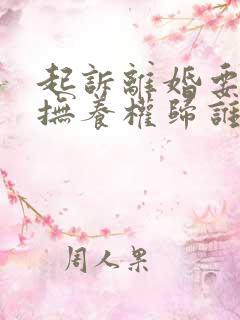 起訴離婚要
撫養權歸誰
周人果